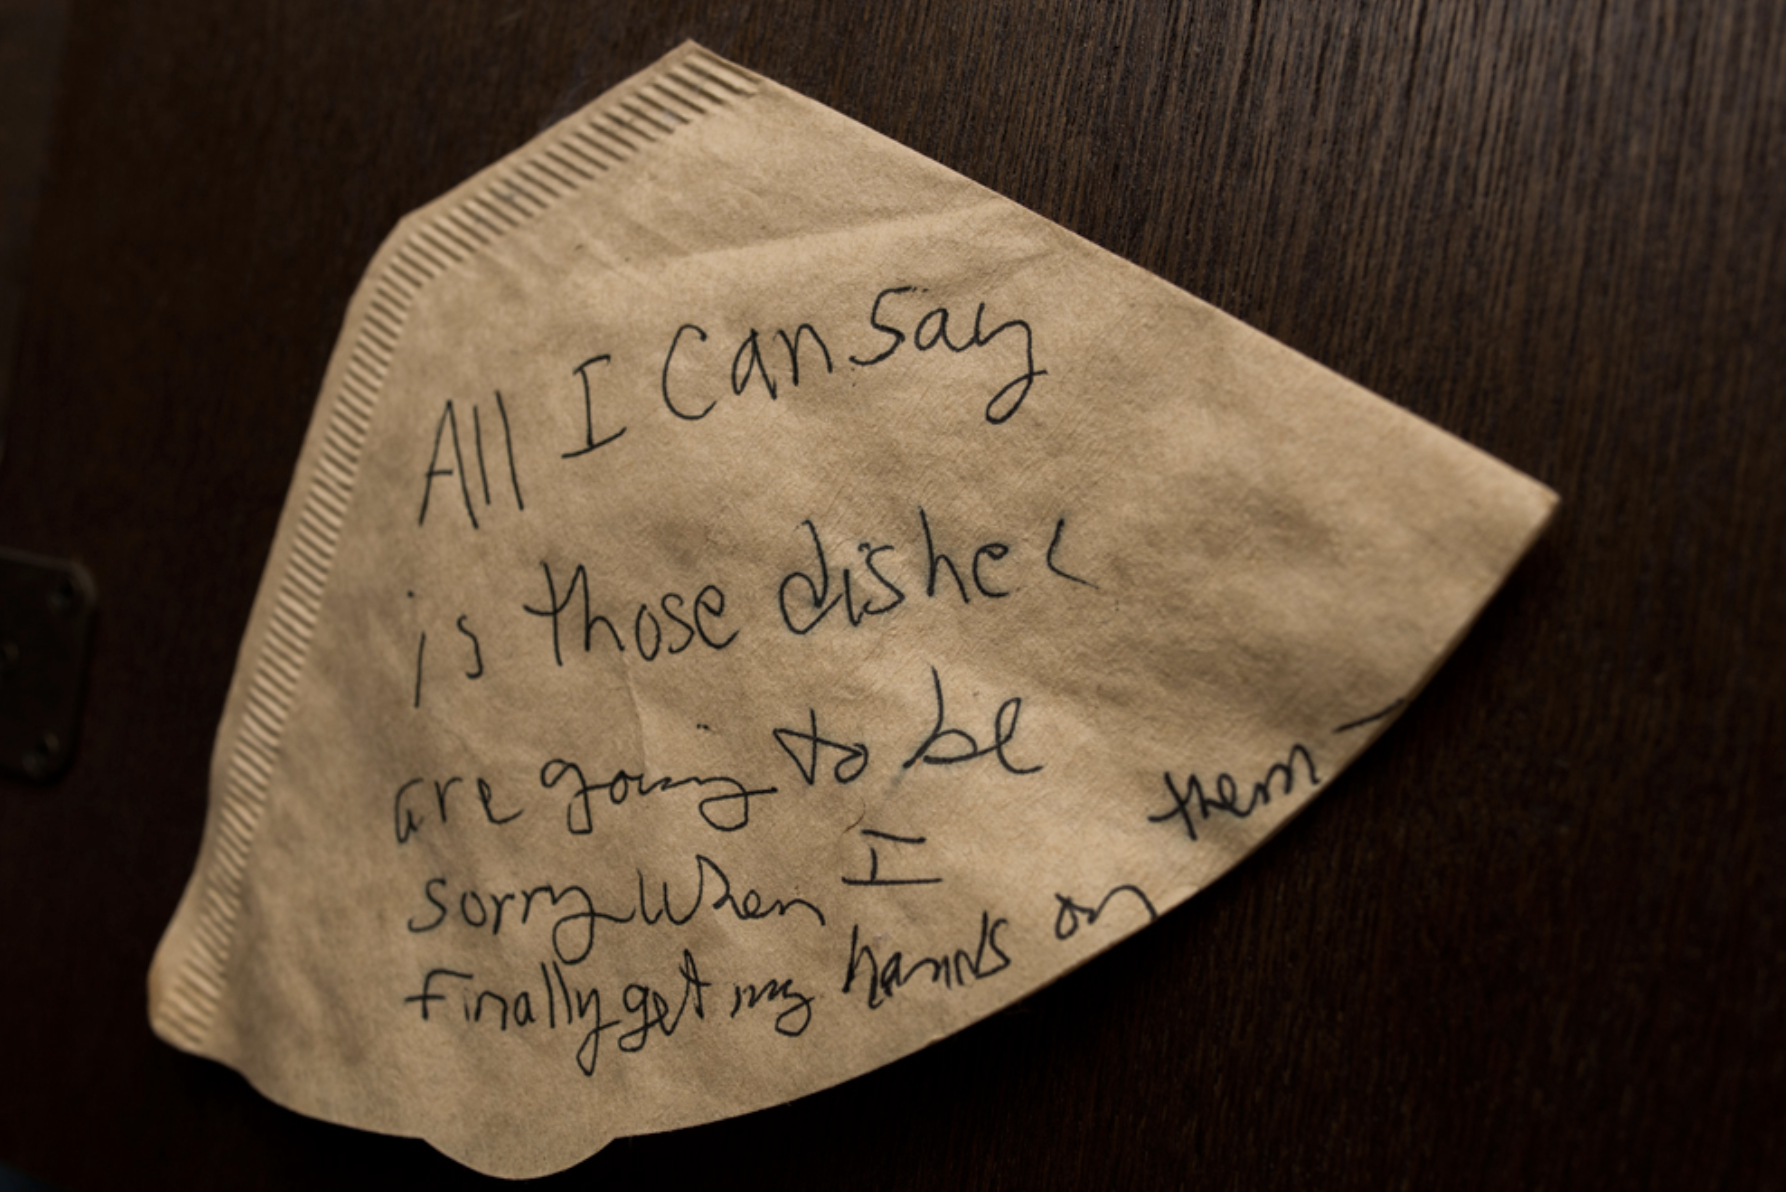 All I Can Say
is those dishes
are going to be
sorry when I
finally get my hands on
them -